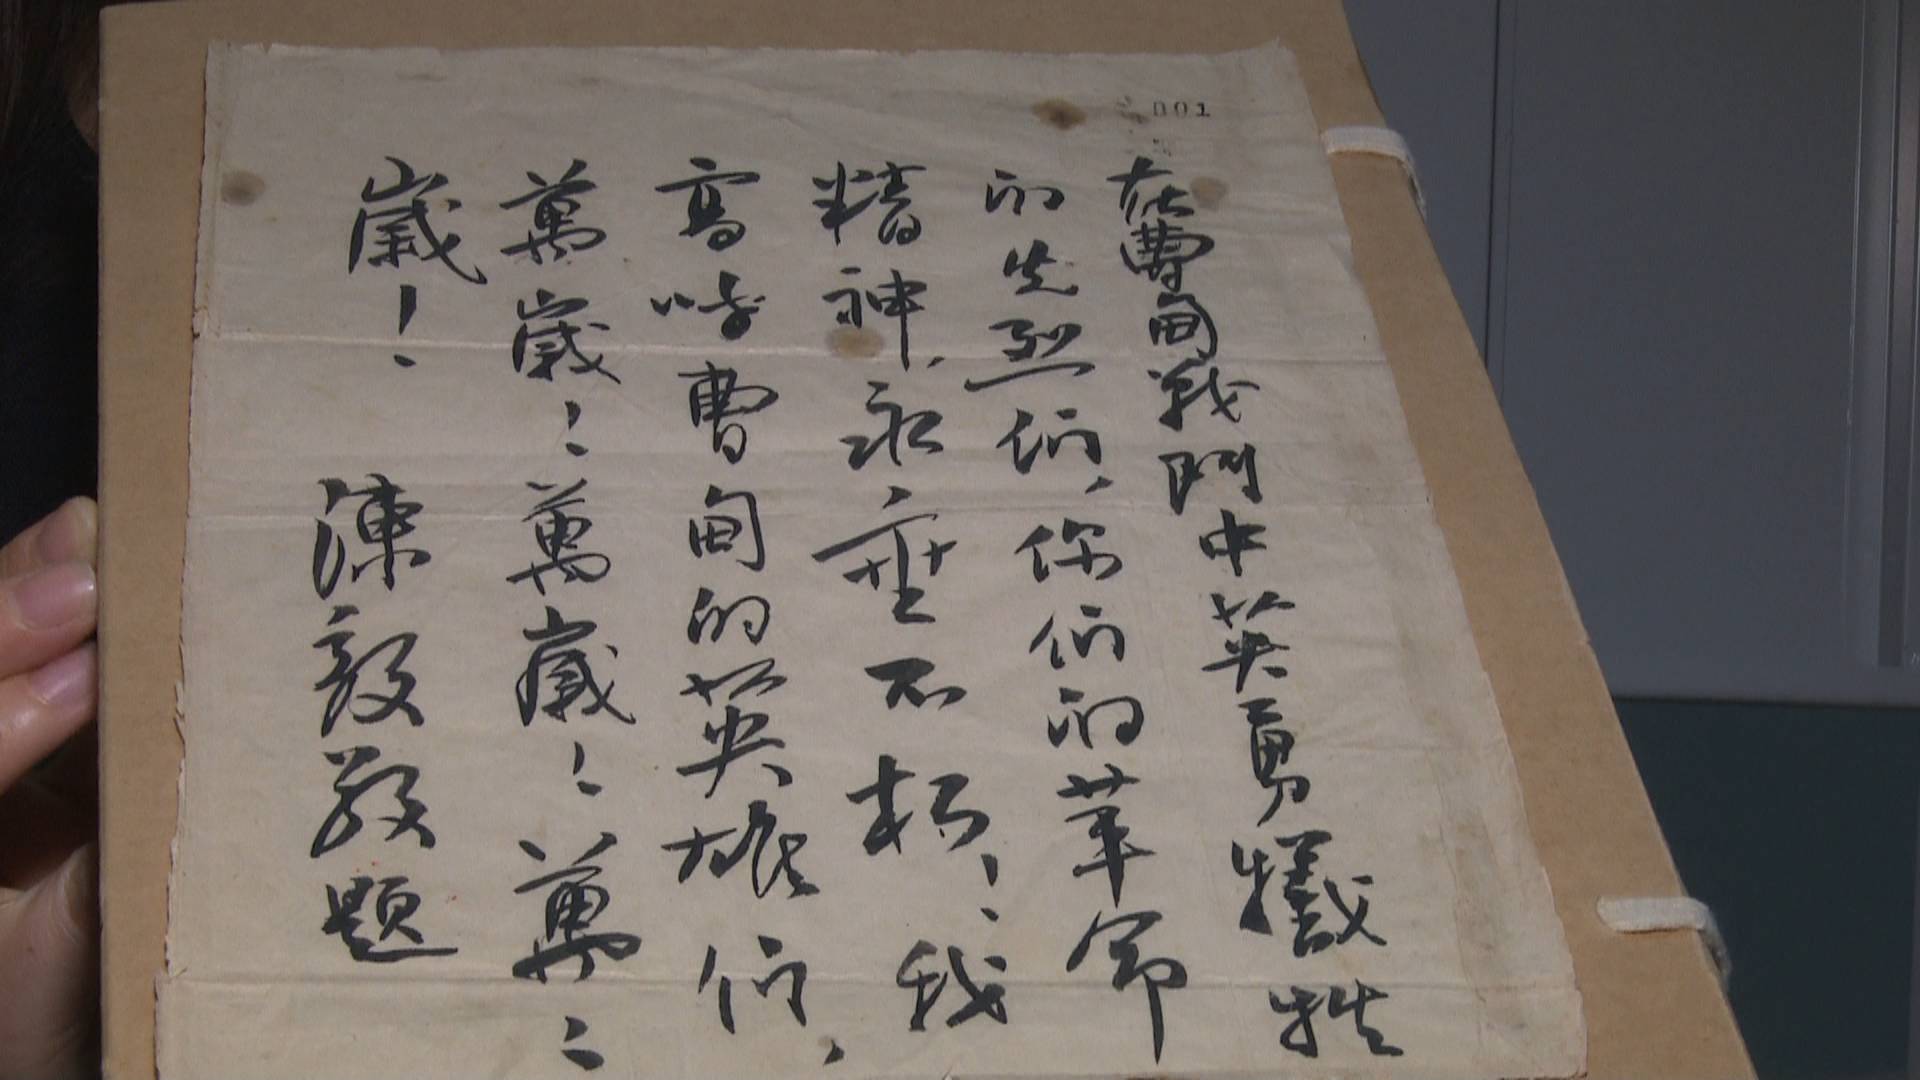 001
在曹甸戰鬥中英勇犧牲
的先烈们、你们的革命
精神，永垂不朽！我
高呼曹甸的英雄们，
萬歲！萬歲！萬
歲！ 陳毅敬題